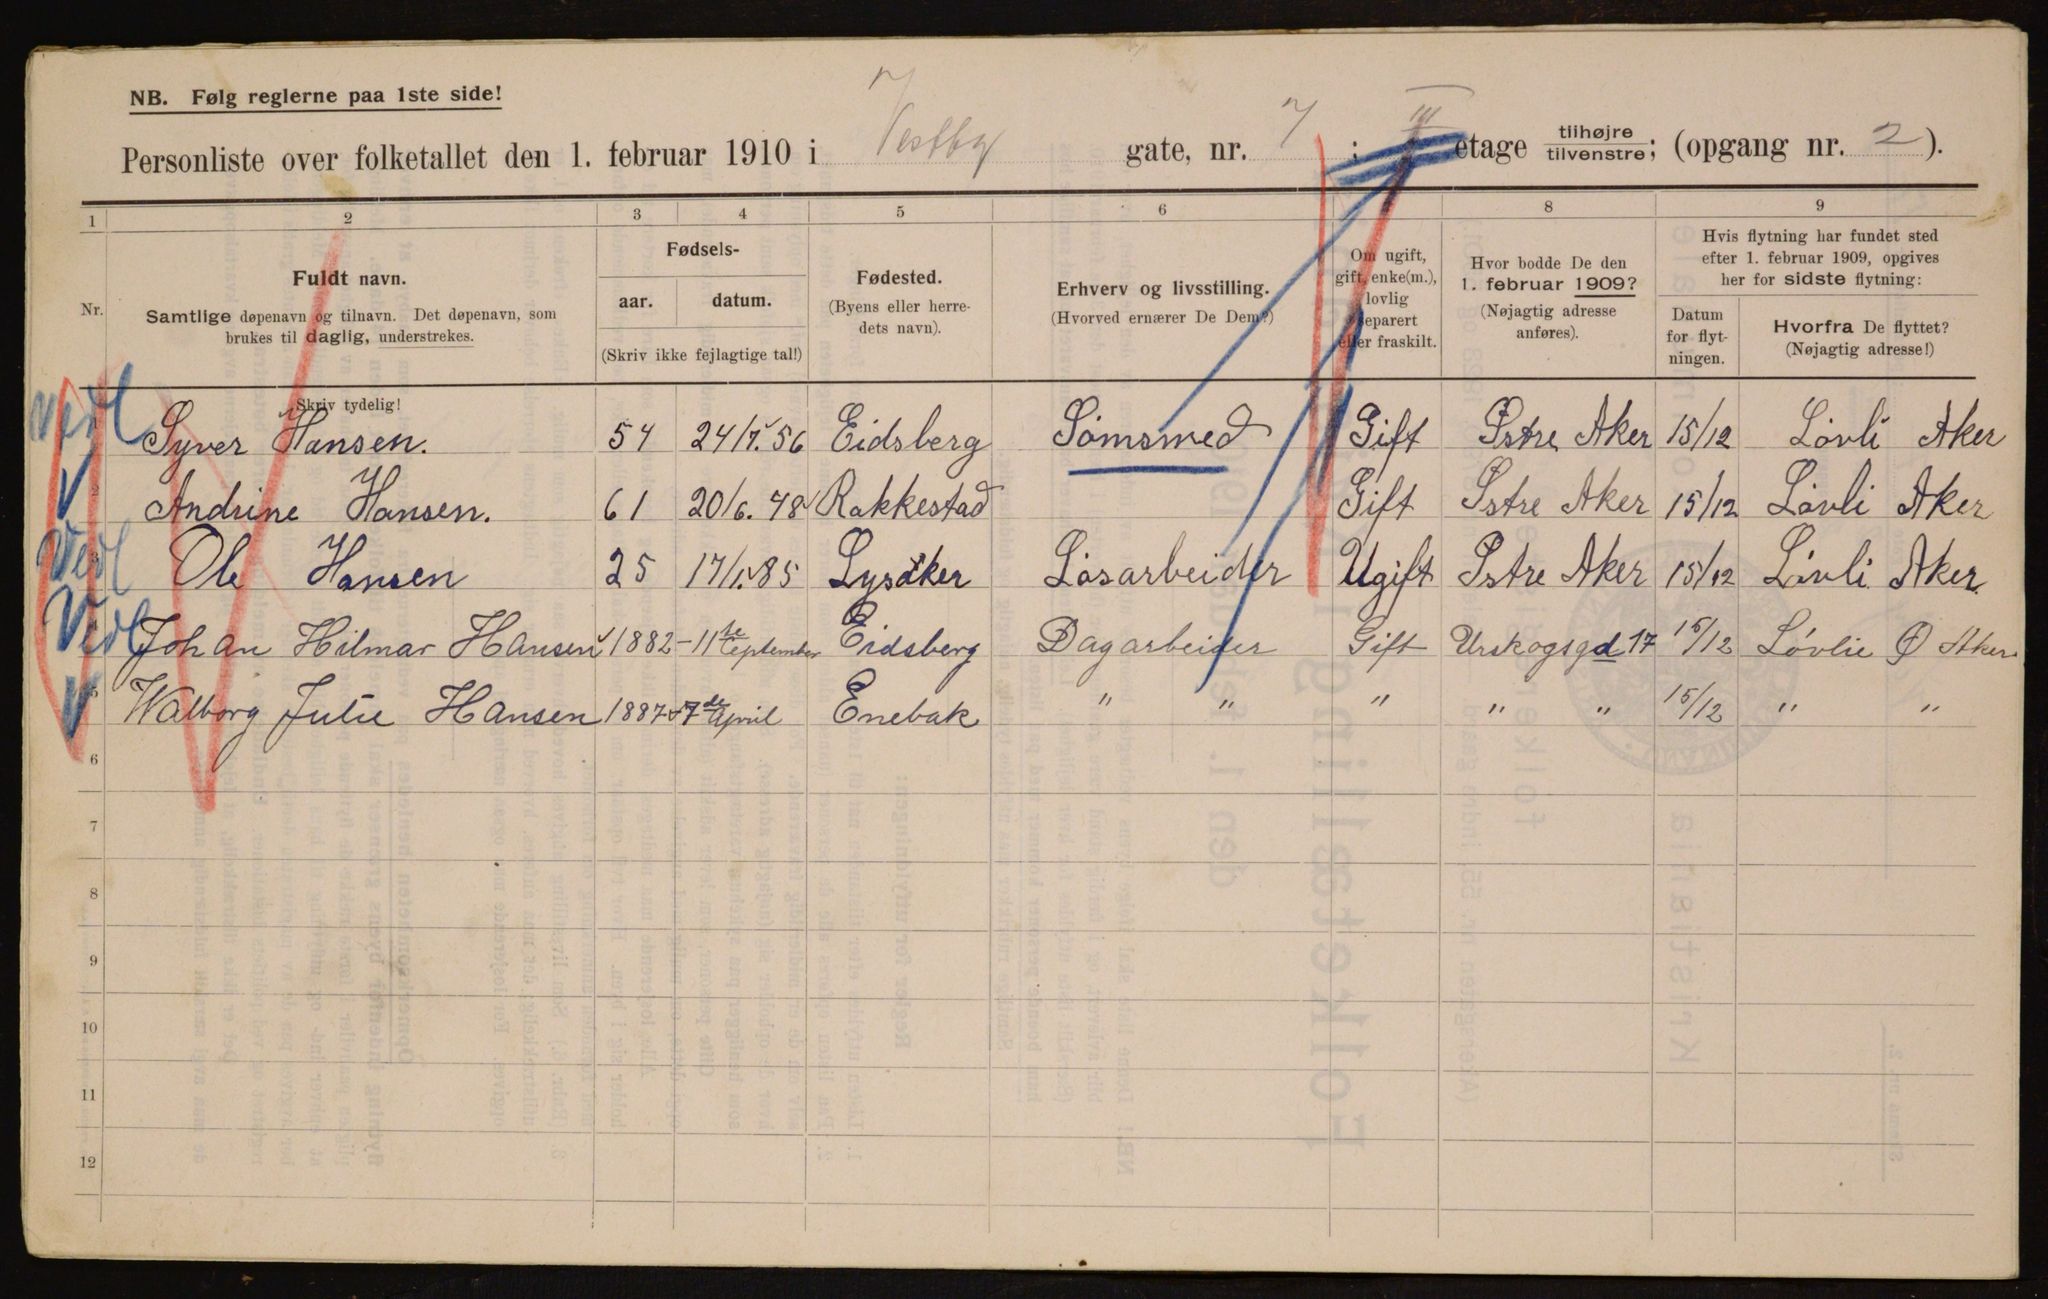 NB. Følg reglerne paa 1ste side!
Personliste over folketallet den 1. februar 1910 i Vestby gate, nr. 7 ; III etage tilhøjre tilvenstre; (opgang nr. 2 ).
1 2 3 4 5 6 8 9
Nr.
Fuldt navn.
Samtlige døpenavn og tilnavn. Det døpenavn, som
brukes til daglig, understrekes.
Fødsels-
aar. datum.
(Skriv ikke fejlagtige tal!)
Fødested.
(Byens eller herre-
dets navn).
Erhverv og livsstilling.
(Hvorved ernærer De Dem?)
Om ugift,
gift, enke(m.),
lovlig
separert
eller fraskilt.
Hvor bodde De den
1. februar 1909?
(Nøjagtig adresse
anføres).
Hvis flytning har fundet sted
efter 1. februar 1909, opgives
her for sidste flytning:
Datum
for flyt-
ningen.
Hvorfra De flyttet?
(Nøjagtig adresse!)
Skriv tydelig!
Vedl Syver Hansen. 54 24/7. 56 Eidsberg Sømsmed Gift Østre Aker 15/12 Løvli Aker
2 Andrine Hansen. 61 20/6. 48 Rakkestad Gift Østre Aker 15/12 Løvli Aker
Vedl 3 Ole Hansen 25 17/1. 85 Lysaker Løsarbeider Ugift Østre Aker 15/12 Løvli Aker
Vedl Johan Hilmar Hansen 1882 - 11te September Eidsberg Dagarbeider Gift Urskogsgd 17 15/12 Løvlie Ø Aker
5 Walborg Julie Hansen 1887 - 7de April Enebak " " " " " 15/12 " "
6
7
8
9
10
11
12